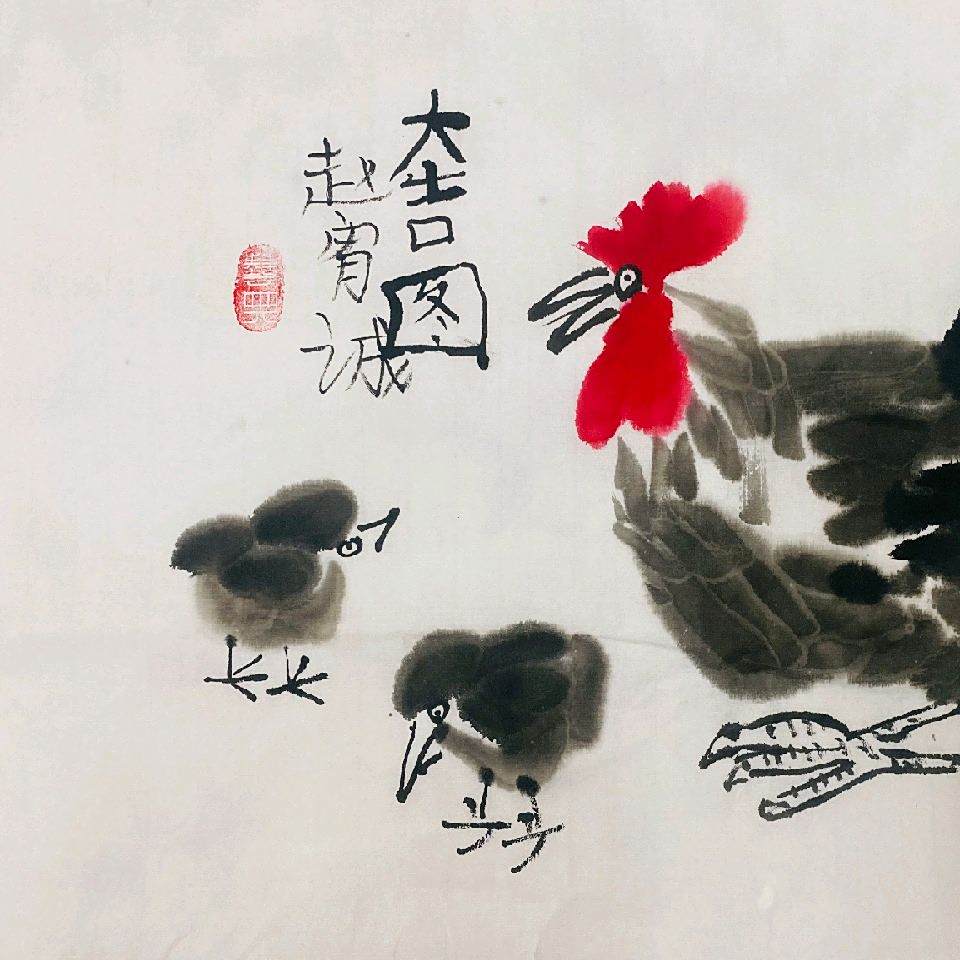 大吉图
赵宥诚